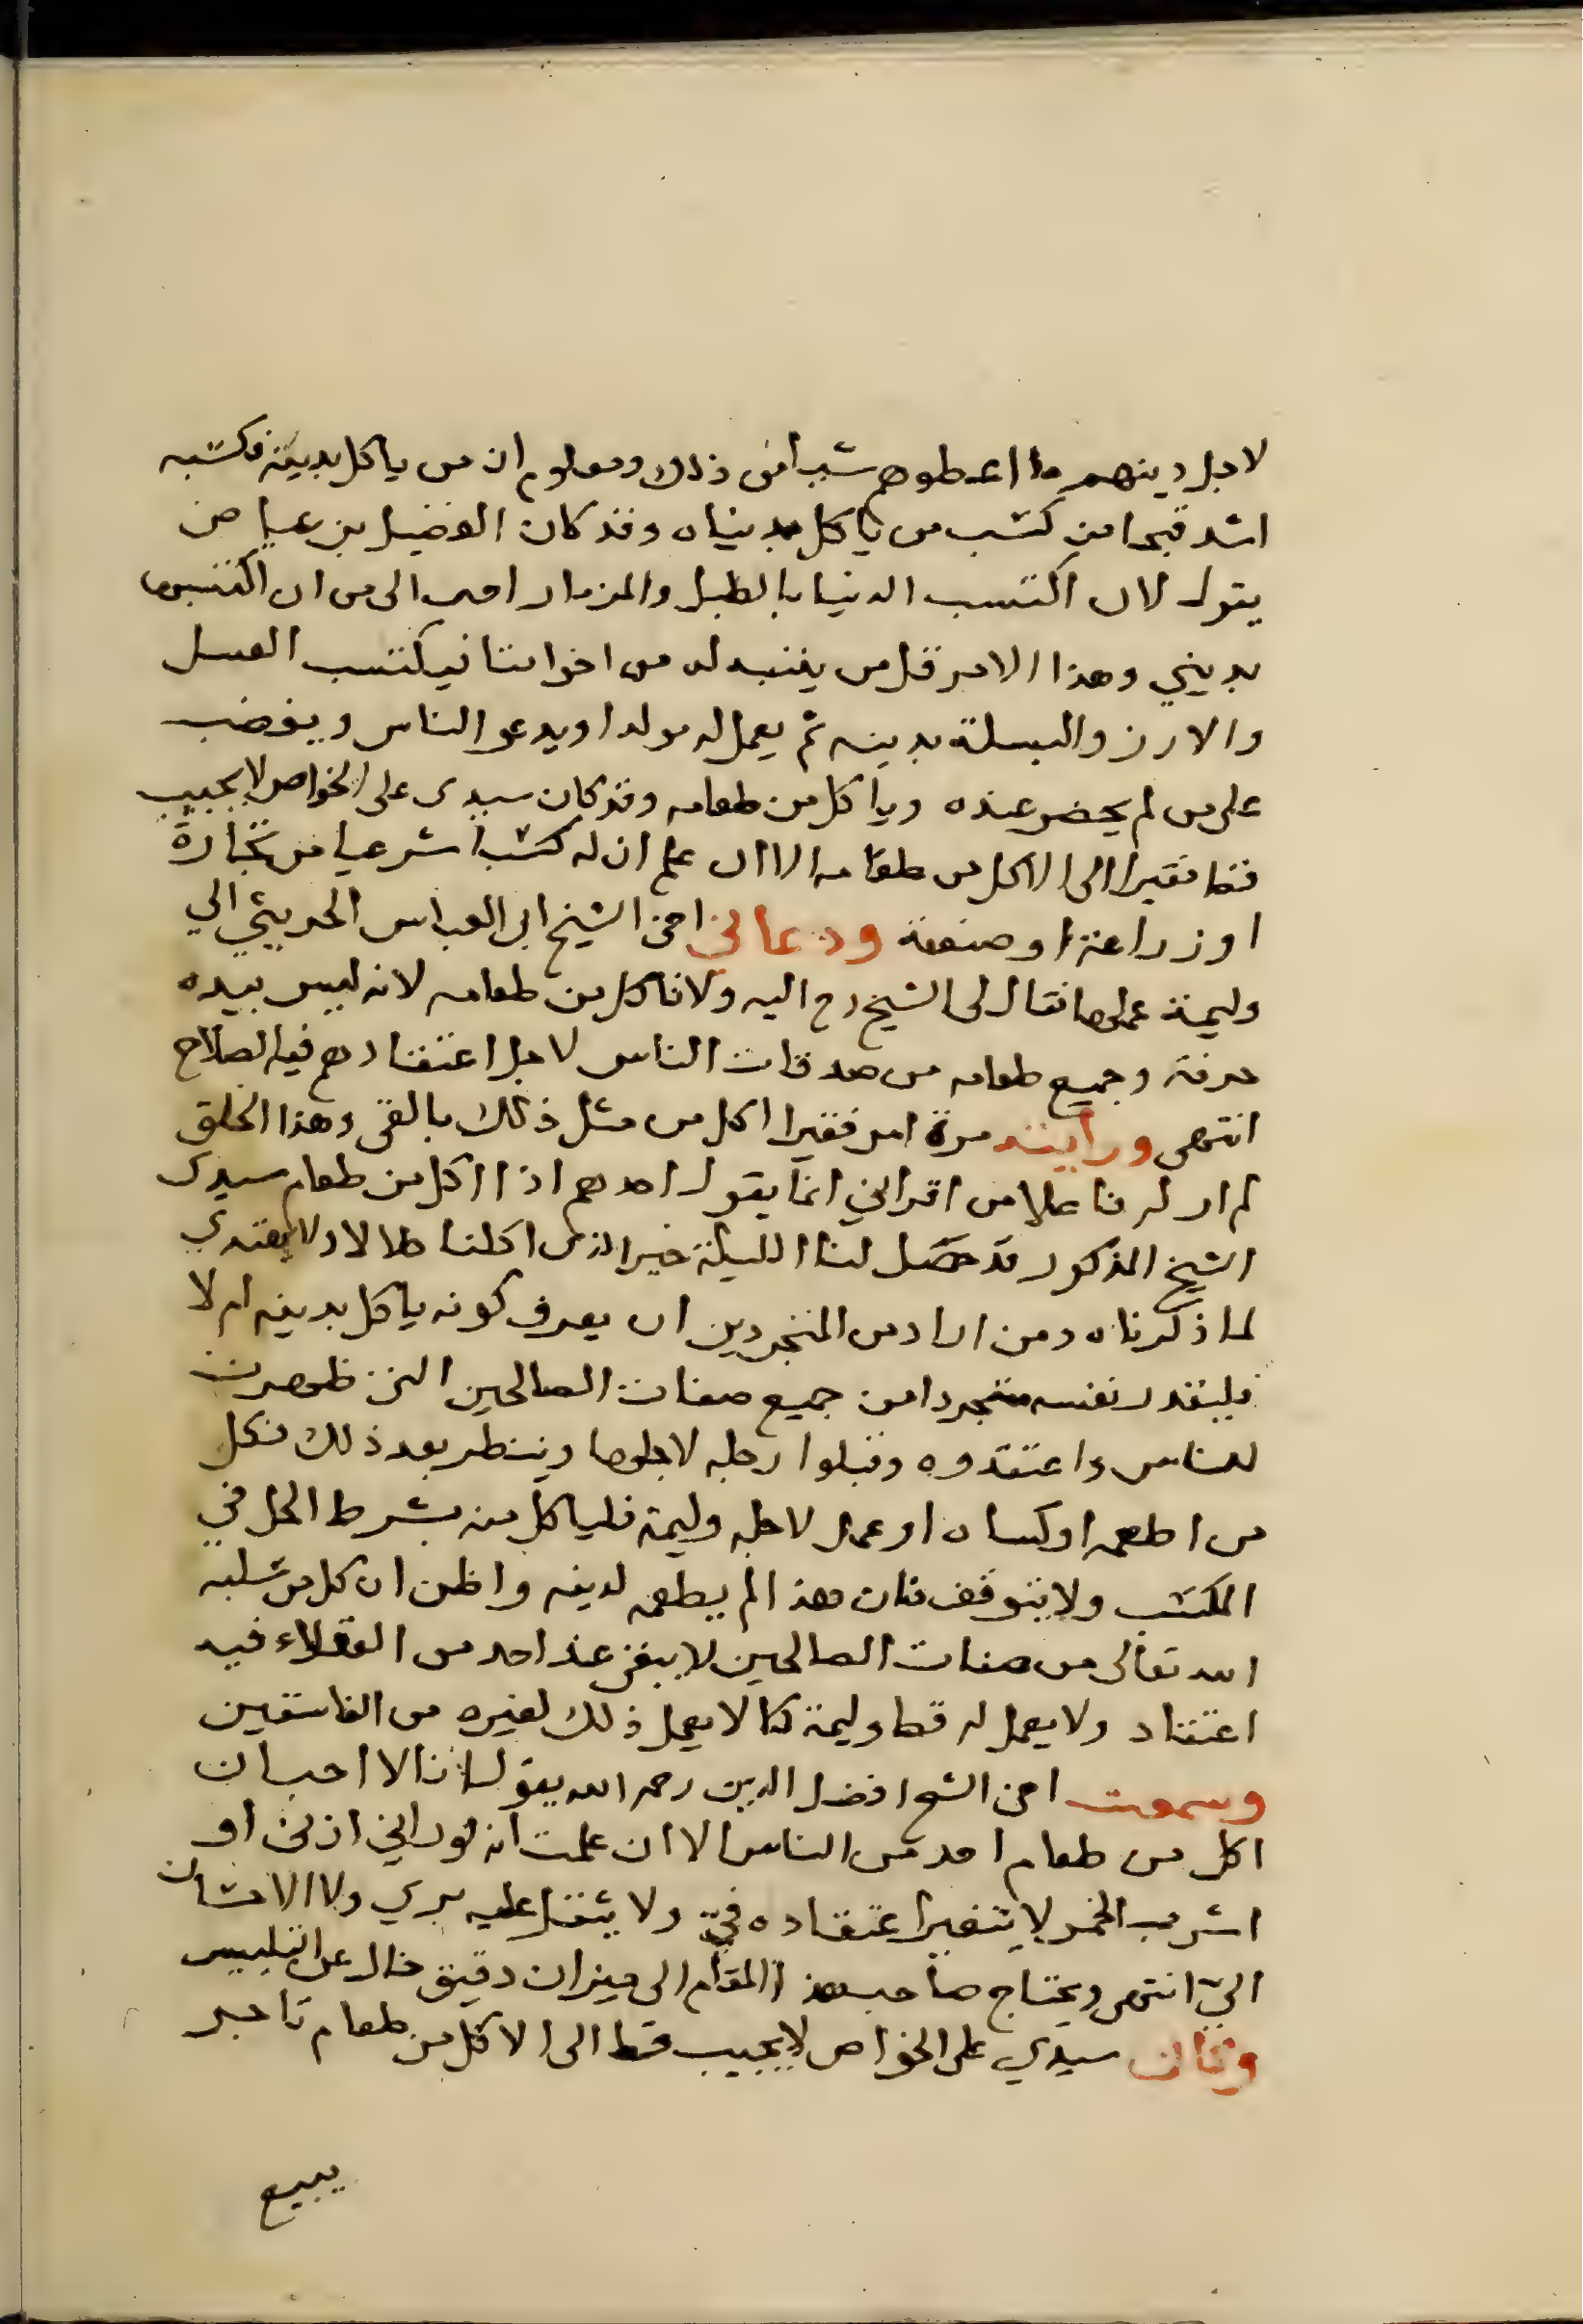 لاجل دينهم ما اعطوهم شيئا من ذلك ومعلوم ان من ياكل بدينه فكسبه
اشد قبحا من كسب من ياكل بدنياه وقد كان الفضيل بن عياض
يقول لان اكتسب الدنيا بالطبل والمزمار احب الى من ان اكتسبها
بديني وهذا الامر قل من يتنبه له من اخواننا فيكتسب العسل
والارز والبسلة بدينه ثم يعمل له مولدا ويدعو الناس ويغضب
على من لم يحضر عنده وياكل من طعامه وقد كان سيدى على الخواص لا يجيب
قط فقيرا الى الاكل من طعامه الا ان علم ان له كسبا شرعيا من تجارة
او زراعة او صنعة ودعانى اخى الشيخ ابى العباس الحريثي الي
وليمة عملها فقال لى الشيخ رح اليه ولا تاكل من طعامه لانه ليس بيده
حرفة وجميع طعامه من صدقات الناس لاجل اعتقادهم فيه الصلاح
انتهى ورأيته مرة امر فقيرا اكل من مثل ذلك بالقى وهذا الخلق
لم ار له فاعلا من اقراني انما يقول احدهم اذا اكل من طعام سيدى
الشيخ المذكور قد حصل لنا الليلة خير الذى اكلنا حلالا ولا يهتدي
لما ذكرناه ومن اراد من المتجردين ان يعرف كونه ياكل بدينه ام لا
فليقدر نفسه متجردا من جميع صفات الصالحين التى ظهرت
للناس واعتقدوه وقبلوا رجله لاجلها وينظر بعد ذلك فكل
من اطعمه او كساه او عمل لاجله وليمة فلياكل منه بشرط الحل في
المكسب ولا يتوقف فان هذا لم يطعمه لدينه واظن ان كل من سلبه
الله تعالى من صفات الصالحين لا يبقى عند احد من العقلاء فيه
اعتقاد ولا يعمل له قط وليمة كما لا يعمل ذلك لغيره من الفاسقين
وسمعت اخى الشيخ افضل الدين رحمه الله يقول انا لا احب ان
اكل من طعام احد من الناس الا ان علمت انه لو رانى ازنى او
اشرب الخمر لا يتغير اعتقاده فيّ ولا يثقل عليه بري ولا الاحسان
اليّ انتهى ويحتاج صاحب هذا المقام الى ميزان دقيق خال عن التلبيس
وكان سيدي على الخواص لا يجيب قط الى الاكل من طعام تاجر
يبيع